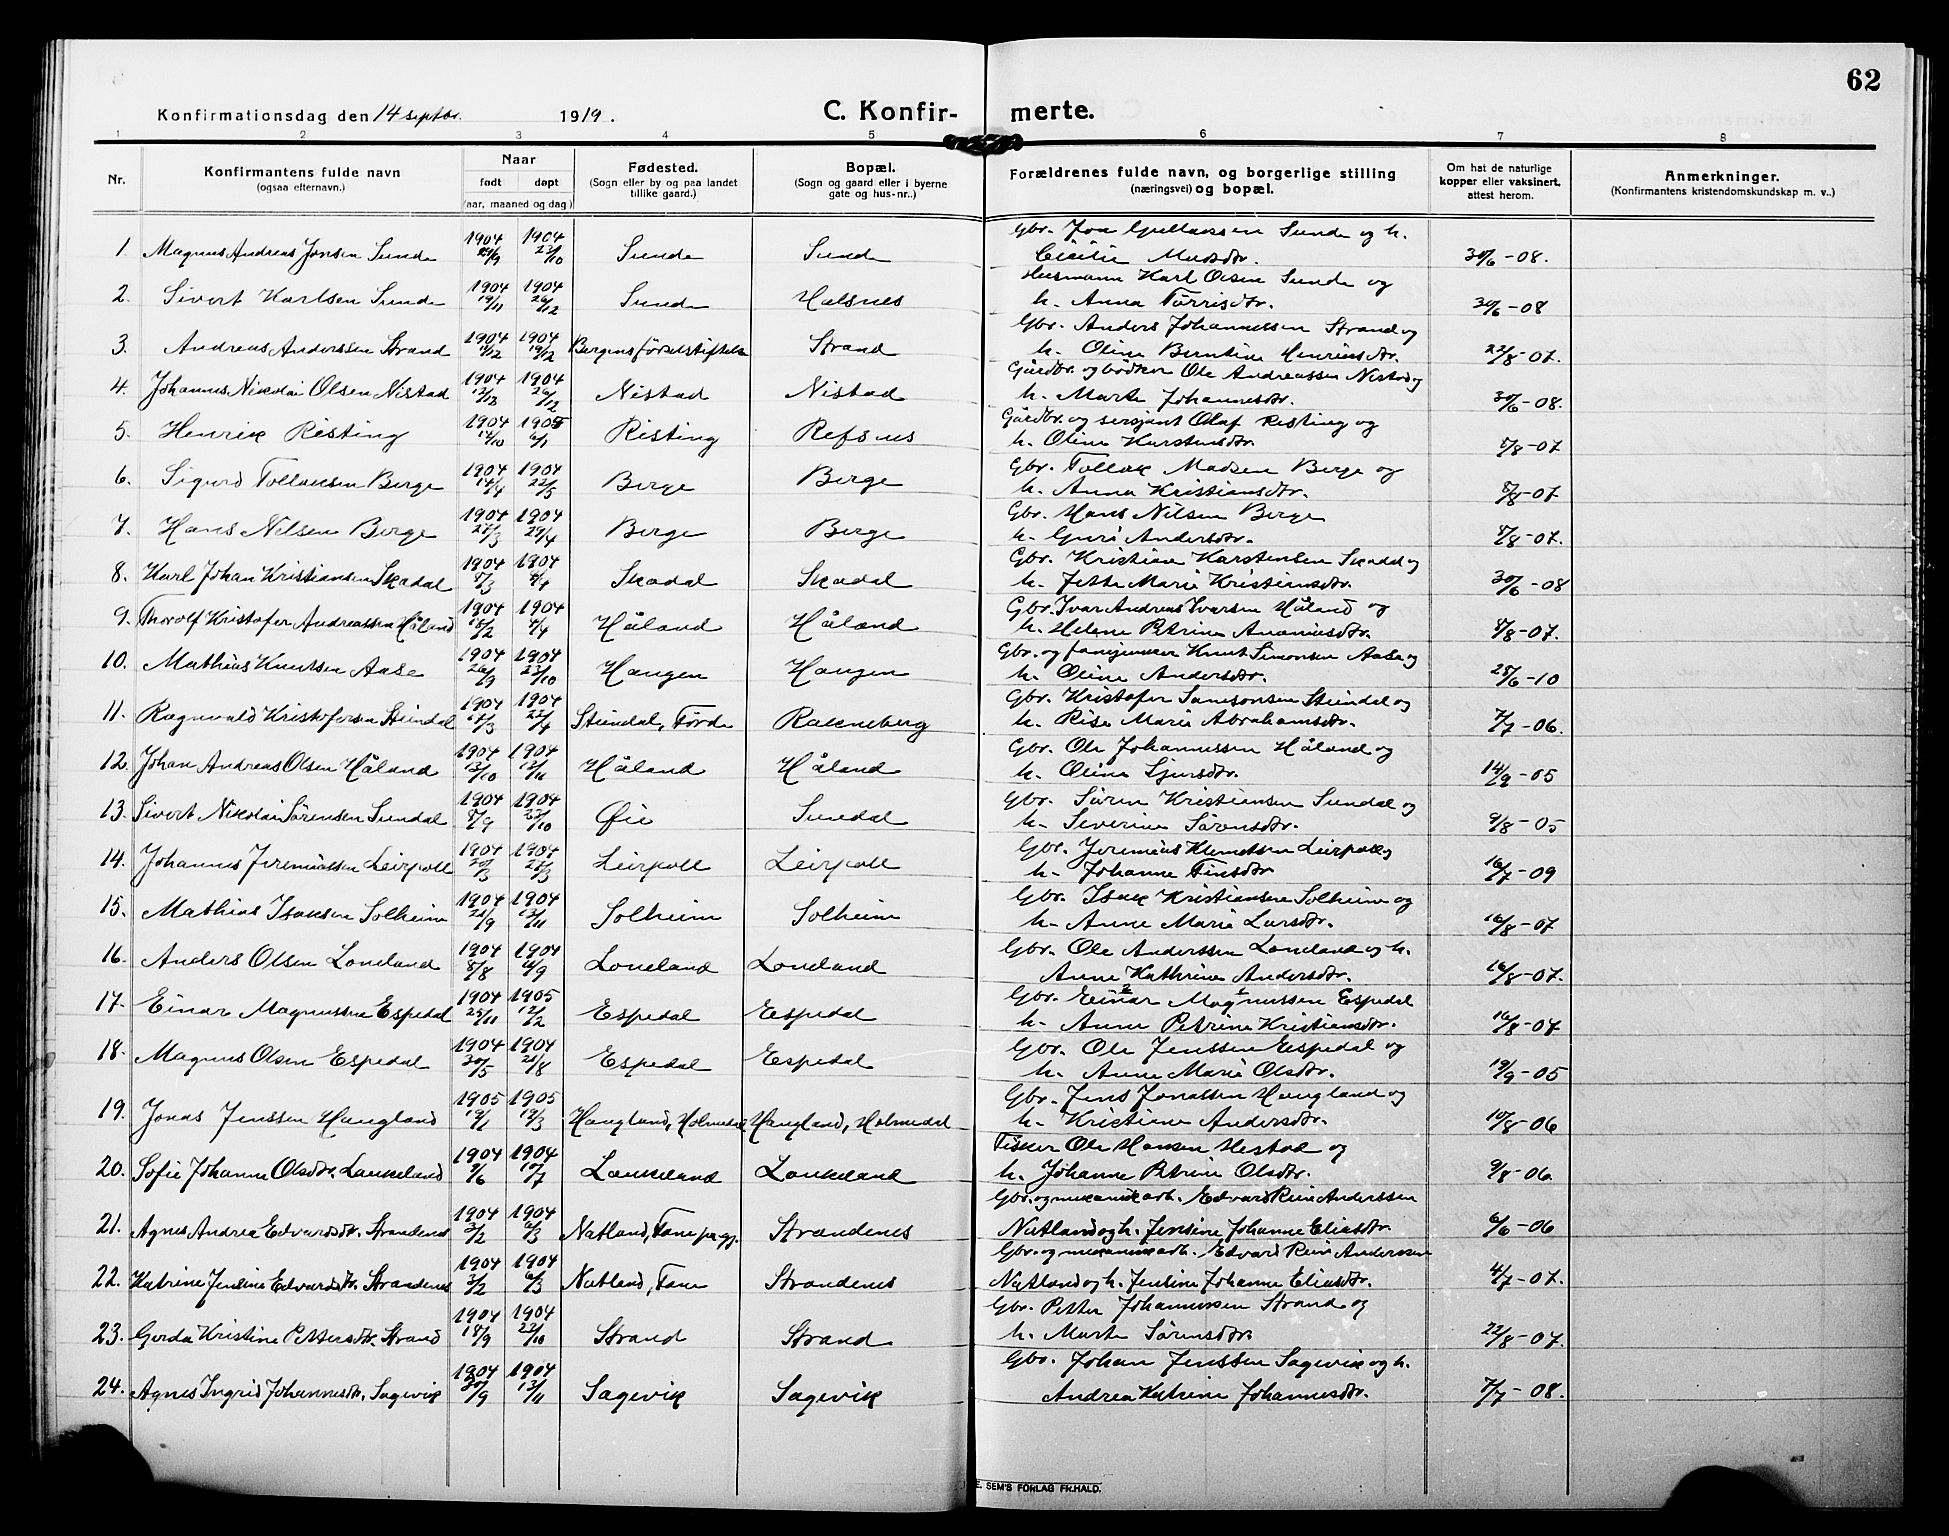 62
Konfirmationsdag den 14 septbr. 1919. C. Konfir- merte.
1 2 3 4 5 6 7 8
Nr. Konfirmantens fulde navn (ogsaa efternavn.) Naar født døpt (aar, maaned og dag) Fødested. (Sogn eller by og paa landet tillike gaard.) Bopæl. (Sogn og gaard eller i byerne gate og hus-nr..) Forældrenes fulde navn, og borgerlige stilling (næringsvei) og bopæl. Om hat de naturlige kopper eller vaksinert, attest herom. Anmerkninger. (Konfirmantens kristendomskundskap m. v..)
Gbr. Joa Sunde og h.
1. Magnus Andreas Jonsen Sunde 1904 29/9 1904 23/10 Sunde Sunde Cecilie Madsdtr. 30/6-08.
Hermann Karl Olsen Sunde og
2. Sivert Karlsen Sunde 1904 19/11 1904 26/12 Sunde Halsnes h. Anna Tørrisdtr. 30/6-08
Gbr. Anders Johannessen Strand og
3. Andreas Anderssen Strand 1904 1904 19/2 Bergens fødselstiftelse Strand h. Oline Berntine Henriksdtr. 23/8-07.
Gårdbr. og bødker Ole Andreassen Nistad og
4. Johannes Nikolai Olsen Nistad 1904 1904 26/12 Nistad Nistad h. Marte Johannesdtr. 30/6-08.
Gårdbr. og sersjant Olaf Risting og
5. Henrik Risting 1904 1905 6/1 Risting Refsnes h. Oline Karstensdtr. 8/8-07
Gbr. Tollak Madsen Berge og
6. Sigurd Tollaksen Berge 1904 14/4 1904 22/5 Berge Berge h. Anna Kristiansdtr. 8/8-07
Gbr. Hans Nilsen Berge
7. Hans Nilsen Berge 1904 27/3 1904 29/4 Berge Berge h. Guri Andersdtr. 8/8-07.
Gbr. Kristian Karstensen Skadal og
8. Karl Johan Kristiansen Skadal 1904 8/3 1904 4/4 Skadal Skadal h. Jette Marie Kristiansdtr. 30/6-08
Gbr. Ivar Andreas Ivarsen Håland og
9. Thorolf Kristofer Andreassen Håland 1904 18/2 1904 4/4 Håland Håland h. Helene Petrine Ananiasdtr. 8/8-07.
Gbr. og fanejunker Knut Simonsen Aase og
10. Mathias Knutsen Aase 1904 26/9 1904 23/10 Haugen Haugen h. Oline Andersdtr. 28/6-10
Gbr. Kristofer Samsonsen Steindal og
11. Ragnvald Kristofersen Steindal 1904 1904 Steindal, Førde Rakneberg h. Rise Marie Abrahamsdtr. 7/7-06.
Gbr. Ole Johannessen Håland og
12. Johan Andreas Olsen Håland 1904 13/10 1904 13/11 Håland Håland h. Oline Sjursdtr. 14/9-05
Gbr. Søren Kristiansen Sundal og
13. Sivert Nikolai Sørensen Sundal 1904 8/9 1904 23/10 Øie Sundal h. Severine Sørensdtr. 9/8-05
Gbr. Jeremias Klemetsen Leirpoll og
14. Johannes Jeremiassen Leirpoll 1904 1904 27/3 Leirpoll Leirpoll h. Johanne Finsdtr 16/7-09
Gbr. Isak Kristiansen Solheim og
15. Mathias Isaksen Solheim 1904 25/9 1904 13/11 Solheim Solheim h. Anne Marie Larsdtr. 16/8-07
Gbr. Ole Anderssen Loneland og h.
16. Anders Olsen Loneland 1904 8/8 1904 4/9 Loneland Loneland Anne Kathrine Andersdtr. 16/8-07.
Gbr. Einar Magnussen Espedal
17. Einar Magnussen Espedal 1904 25/11 1905 12/2 Espedal Espedal h. Anne Petrine Kristiansdtr. 16/8-07
Gbr. Ole Jenssen Espedal og
18. Magnus Olsen Espedal 1904 30/5 1904 21/8 Espedal Espedal h. Anne Marie Olsdtr. 19/9-05
Gbr. Jens Jonassen Haugland og
19. Jonas Jenssen Haugland 1905 1905 19/3 Haugland, Holmedal Haugland, Holmedal h. Kristine Andersdtr. 10/8-06
Fisker Ole Hansen Hestad og
20. Sofie Johanne Olsdtr. Laukeland 1904 9/6 1904 10/7 Laukeland Laukeland h. Johanne Petrine Olsdtr. 9/8-06.
Gbr. og mekanikarb. Edvard Rein Anderssen
21. Agnes Andrea Edvardsdtr. Strandenes 1904 3/2 1904 6/3 Natland, Fane pgj. Strandenes Natland og h. Jensine Johanne Eliasdtr. 6/6-06
Gbr. og mekanikarb. Edvard Rein Anderssen
22. Katrine Jensine Edvardsdtr. Strandenes 1904 3/2 1904 6/3 Natland, Fane Strandenes Natland og h. Jensine Johanne Eliasdtr. 4/7-07.
Gbr. Petter Johannessen Strand og
23. Gerda Kristine Pettersdtr. Strand 1904 18/9 1904 23/10 Strand Strand h. Marte Sørensdtr. 22/8-07.
Gbr. Johan Jenssen Sagevik og h.
24. Agnes Ingrid Johannesdtr. Sagevik 1904 30/9 1904 13/11 Sagevik Sagevik Andrea Katrine Johannesdtr. 7/7-08.
E. SEM'S FORLAG FR.HALD.